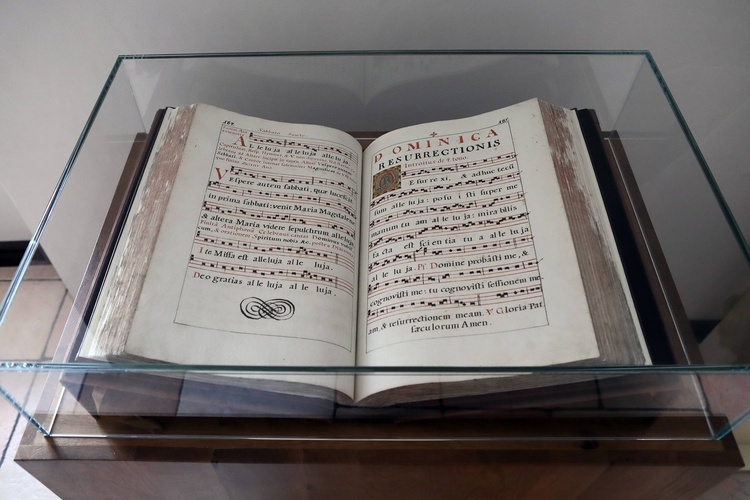 Sabbato Sancto
A L le lu ja al le lu ja alle lu ja.
V Espere autem sabbati, quæ lucescit
in prima sabbati: venit Maria Magdalene
& altera Maria videre sepulchrum, alle lu ja.
I te Missa est alleluja al le luja.
Deo gratias al le luja al le luja.
DOMINICA
RESURRECTIONIS
Introitus
E surre xi, & adhuc te cũ
sum alle lu ja: posu i sti super me
manum tu am al le lu ja: mira bilis
fa cta est sci en tia tu a al le luja
al le lu ja. Ps. Domine probasti me, &
cognovisti me: tu cognovisti sessionem me
am, & resurrectionem meam. V. Gloria Pat.
sæculorum Amen.